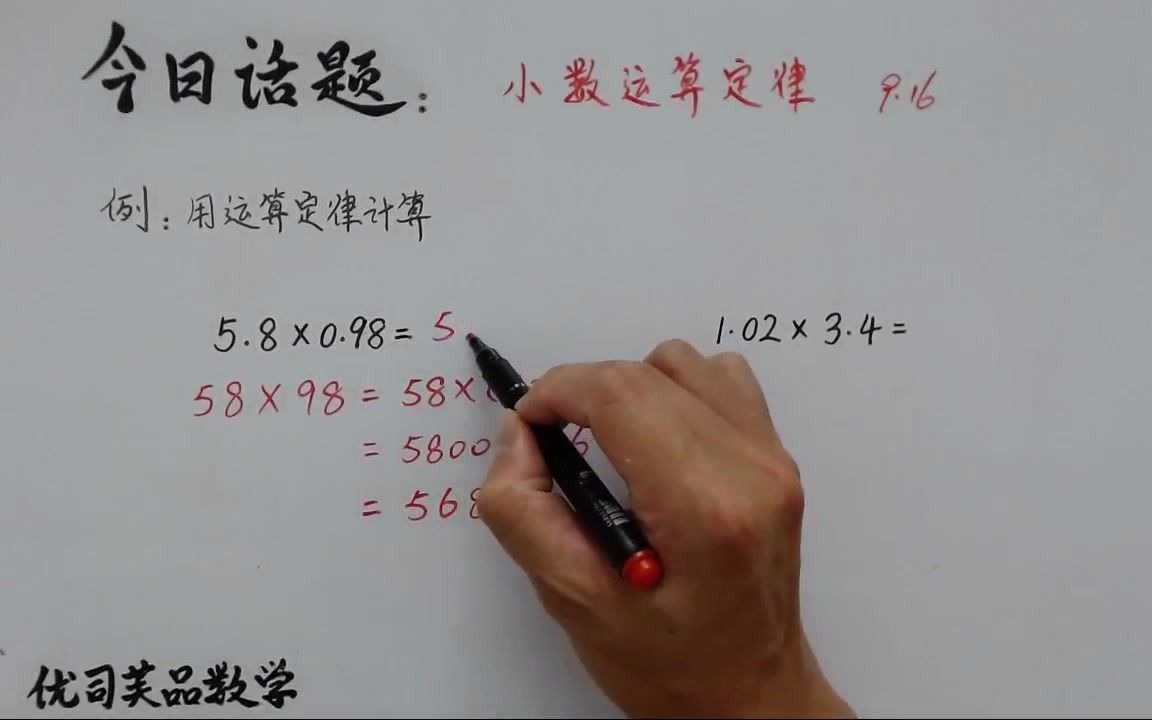 今日话题： 小数运算定律 9.16
例：用运算定律计算
5.8×0.98= 5. 1.02×3.4=
58×98=58×
=5800 6
=568
优司芙品数学